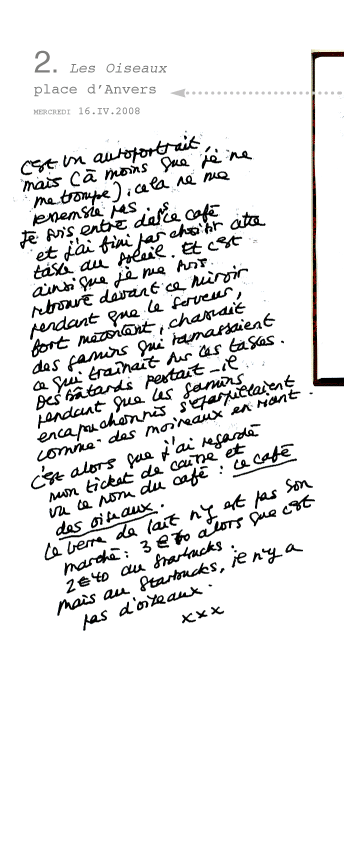 2. Les Oiseaux
place d'Anvers
MERCREDI 16.IV.2008
C'est un autoportrait,
mais (à moins que je ne
me trompe), cela ne me
ressemble pas.
Je suis entré dans ce café
et j'ai fini par choisir cette
table au soleil. Et c'est
ainsi que je me suis
retrouvé devant ce miroir
pendant que le serveur,
fort mécontent, chassait
des gamins qui ramassaient
ce qui traînait sur les tables.
Des bâtards pestait-il
pendant que les gamins
encapuchonnés s'éparpillaient
comme des moineaux en riant.
C'est alors que j'ai regardé
mon ticket de caisse et
vu le nom du café : Le café
des oiseaux.
Le verre de lait n'y est pas bon
marché : 3 € 70 alors que c'est
2 € 40 au Starbucks.
Mais au Starbucks, il n'y a
pas d'oiseaux.
xxx